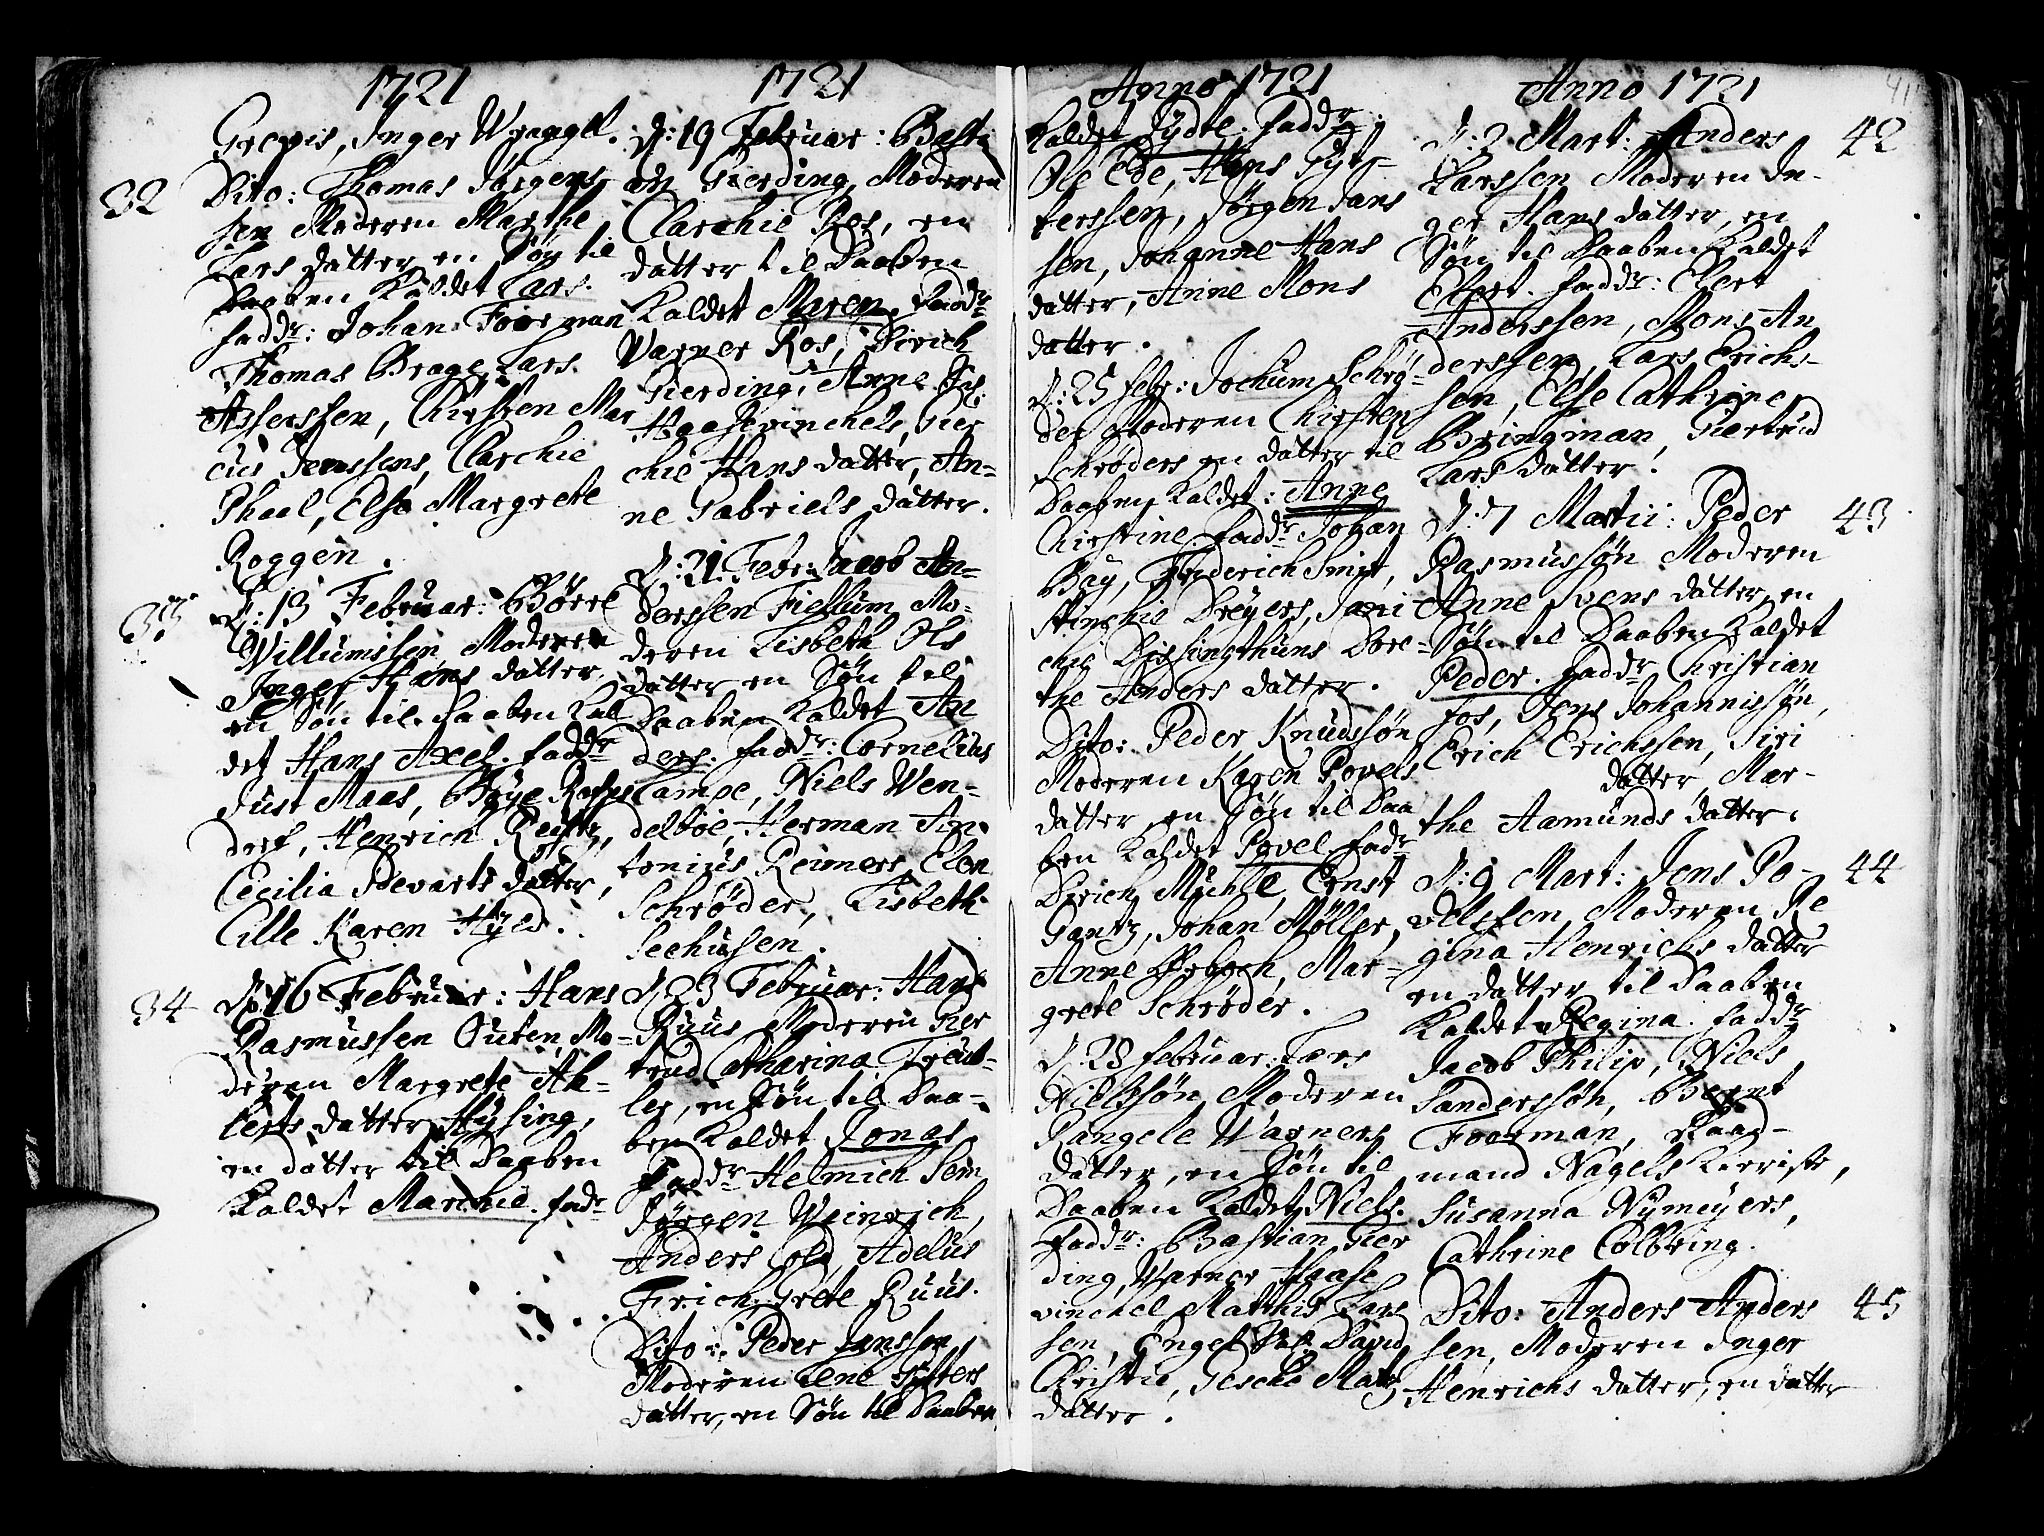 1721
Grevis, Inger Wrangel.
32
Dito: Thomas Jørgens
sen Moderen Marthe
Lars datter en Søn til
Daaben Kaldet Lars.
fadd: Johan Foor man
Thomas Brage, Lars
Asserssen, Kirsten Mar
cus Jenssens, Clarchie
Phaal, Else Margrete
Roggen.
33
D: 13 Februar: Børre
Willumssen, Moderen
Inger Hans datter,
en Søn til Daaben Kal
det Hans Axel. fadd
Just Maas, Bøye
dorf, Henrich
Cecilia datter,
Cille Karen
34
D: 16 Februar: Hans
Rasmussen Moderen Margrete Ah-
lerts datter Hysing,
en datter til Daaben
Kaldet Marchie. fadr
1721
D: 19 Februar: Basti
an Gierding, Moderen
Clarchie Ros, en
datter til Daaben
Kaldet Maren. fadd
Varner Ros, Dirich
Gierding, Anne Sal:
Haasevinckels, Gier
chie Hans datter, An-
ne Gabriels datter.
D: 21. Febr: Jacob An-
derssen Fiellum Mo-
deren Lisbeth Ols
datter en Søn til
Daaben Kaldet An
ders. fadd: Cornelius
Campe, Niels Wen-
delboe, Herman An-
tonius Reimers, Elen
Schrøder, Lisbeth
Seehusen.
D: 23 Februar: Hans
Ruus Moderen Gier
trud Catharina Treut-
ler, en Søn til Daa-
ben Kaldet Jonas
Fadd Helmich Sem
Jørgen Weinrich,
Anders Cold, Adelus
Frich, Grete Ruus.
Dito: Peder Jenssen
Moderen Lene
datter, en Søn til Daaben
Anno 1721
Kaldet Sydte. fadd:
Ole Ede, Hans
terssen, Jørgen Jans
sen, Johanne Hans
datter, Anne Mons
datter.
D: 25 febr: Jochum Schrø-
der Moderen Chirsten
Schrøders en datter til
Daaben Kaldet: Anne
Chirstine. fadd Johan
Bøy, Friderich Smit,
Stinchie Dreyers,
the Anders datter.
Dito: Peder Knudssøn
Moderen Karen Povels
datter en Søn til Daa
ben Kaldet Povel. fadr
Dirich Muhle, Ernst
Gantz, Johan Møller,
Anne Mar-
grete Schrøder.
D: 28 februar: Lars
Nielssøn Moderen
Rangele Warners
datter, en Søn til
Daaben Kaldet Niels.
Fadd: Bastian Gier
ding, Warner Haase
vinckel Matthis Lars
sen, Engel Sal: David
Christie, Gesche Mats
datter.
Anno 1721
41
D: 2 Mart: Anders
42
Larssen Moderen In-
ger Hans datter, en
Søn til Daaben Kaldet
Elert. fadd: Elert
Anderssen, Mons An
derssen, Lars Erichs-
sen, Else Cathrine
Bringman, Giertrud
Lars datter.
D: 7 Martii: Peder
43
Rasmussøn Moderen
Anne Ivens datter, en
Søn til Daaben Kaldet
Peder. fadd Christian
Fos, Jens Johannissøn,
Erich Erichssen, Siri
datter, Mar-
the Aamunds datter.
D: 9 Mart: Jens Po-
44
velssen, Moderen Re
gina Henrichs datter
en datter til Daaben
Kaldet Regina. fadd
Jacob Philip, Niels
Sanderssøn, Bernt
Foorman, Raad-
mand Nagels Kieriste,
Susanna Nymeyers,
Cathrine Colbring.
Dito: Anders Anders
45
sen, Moderen Inger
Henrichs datter, en datter